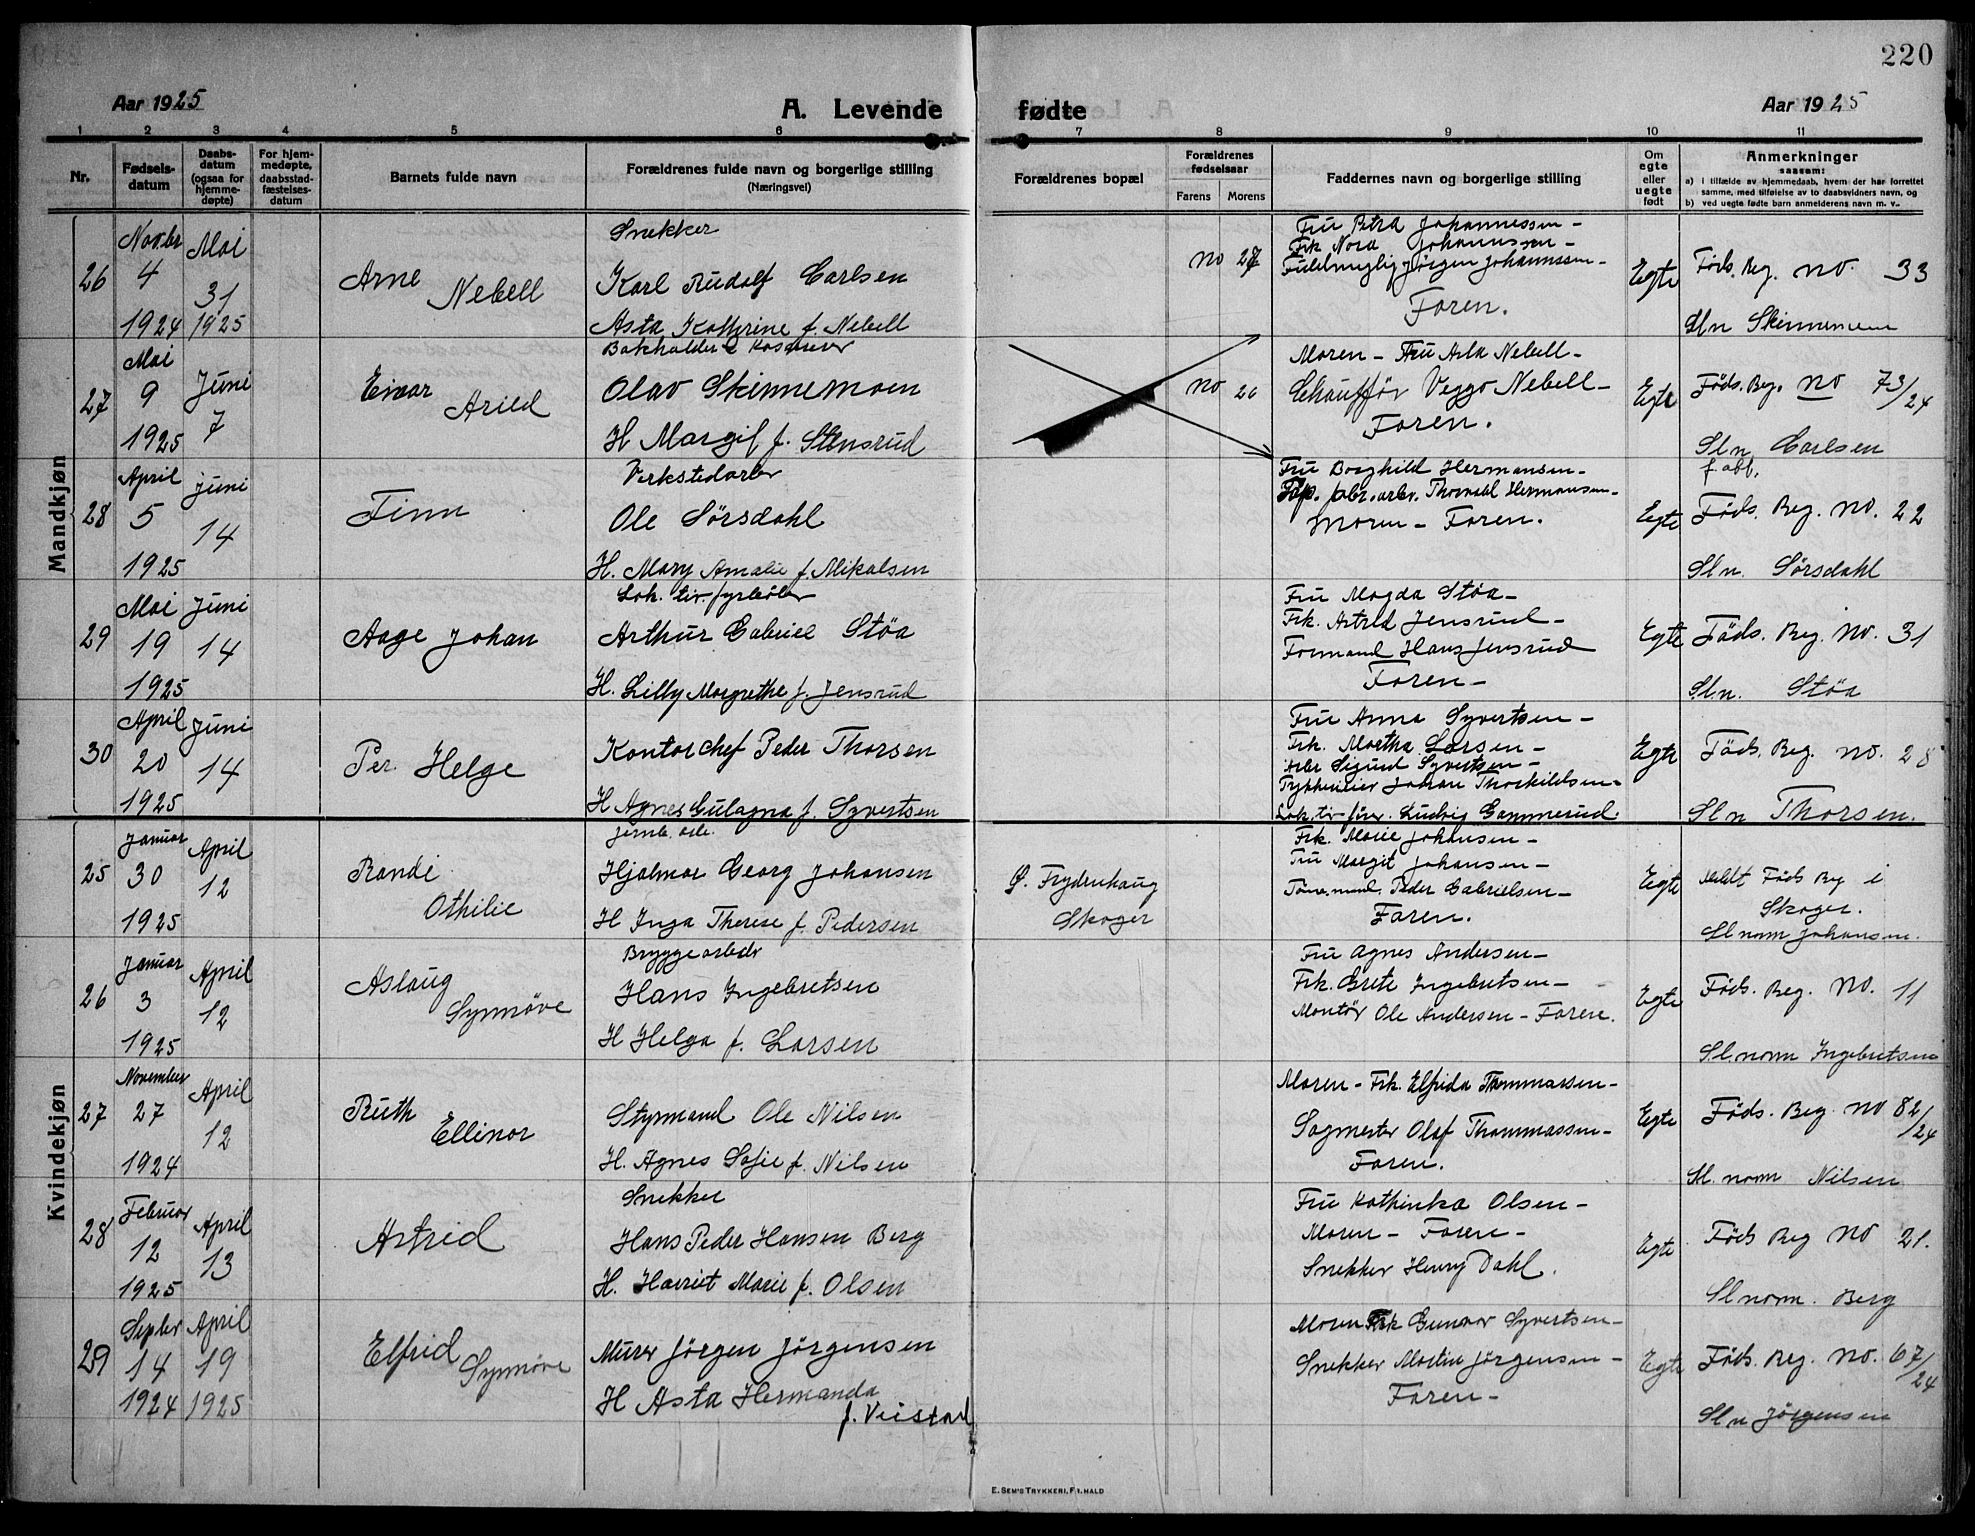 220
Aar 1925
A. Levende fødte
Aar 1925
1 2 3 4 5 6 7 8 9 10 11
Nr.
Fødselsdatum
Daabsdatum (ogsaa for hjemmedøpte)
For hjemmedøpte, daabsstadfæstelsesdatum
Barnets fulde navn
Forældrenes fulde navn og borgerlige stilling
(Næringsvei)
Forældrenes bopæl
Forældrenes fødselsaar
Farens Morens
Faddernes navn og borgerlige stilling
Om egte eller uegte født
Anmerkninger
saasom:
a) I tilfælde av hjemmedaab, hvem der har forrettet samme, med tilføielse av to daabsvidners navn, og
b) ved uegte fødte barn anmelderens navn m. v.
Mandkjøn
26
Novbr 4 1924
Mai 31 1925
Arne Nebell
Snekker
Karl Rudolf Carlsen
Asta Kathrine f. Nebell
no 27
Fru Petra Johannessen –
Frk Nora Johannssen –
Jørgen Johannssen –
Faren.
Egte
Føds. Reg. no. 33
Sln Skinnemoen
27
Mai 9 1925
Juni 7
Einar Arild
Bokholder & Kasserer
Olav Skinnemoen
H Margit f. Stensrud
no 26
Moren – Fru Asta Nebell –
Chauffør Veggo Nebell –
Faren.
Egte
Føds. Reg. no 73/24
Sln Carlsen
28
April 5 1925
Juni 14
Finn
Verkstedarb
Ole Sørsdahl
H. Mary Amalie f. Mikalsen
Fru Borghild Hermansen –
arb. Thorvald Hermansen –
Moren – Faren.
Egte
f. abf.
Føds. Reg. no. 22
Sln. Sørsdahl
29
Mai 19 1925
Juni 14
Aage Johan
Lok. tir. fyrbøter
Arthur Gabriel Støa
H. Lilly Margrethe f. Jensrud
Fru Magda Støa –
Frk. Astrid Jensrud –
Formand Hans Jensrud
Faren –
Egte
Føds. Reg. no. 31
Sln. Støa
30
April 20 1925
Juni 14
Per Helge
Kontorchef Peder Thorsen
H Agnes Gulagna f. Syvertsen
Fru Anna Syvertsen –
Frk. Martha Larsen –
Sigurd Syvertsen –
Johan Thorkildsen –
Lok. tir. før. Ludvig Gammerud.
Egte
Føds. Reg. no. 28
Sln Thorsen.
Kvindekjøn
25
Januar 30 1925
April 12
Randi Othilie
Jernb. arb.
Hjalmar Georg Johansen
H Inga Therese f. Pedersen
Ø. Frydenhaug
Skoger
Frk. Marie Johansen –
Fru Margit Johansen –
Peder Gabrielsen –
Faren.
Egte
Meldt Føds Reg i
Skoger.
Sl navn Johansen.
26
Januar 3 1925
April 12
Aslaug Synnøve
Bryggearbeder
Hans Ingebretsen
H Helga f. Larsen
Fru Agnes Andersen –
Frk. Grete Ingebretsen –
Montør Ole Andersen – Faren.
Egte
Føds. Reg. no. 11
Sl. navn Ingebretsen
27
November 27 1924
April 12
Ruth Ellinor
Styrmand Ole Nilsen
H. Agnes Sofie f. Nilsen
Moren – Frk. Elfrida Thommassen –
Sagmester Olaf Thommassen –
Faren.
Egte
Føds. Reg. no 82/24
Sl. navn Nilsen
28
Februar 12 1925
April 13
Astrid
Snekker
Hans Peder Hansen Berg
H. Harriet Marie f. Olsen
Fru Kathinka Olsen –
Moren – Faren –
Snekker Henry Dahl.
Egte
Føds Reg no 21.
Sl navn. Berg
29
Septbr 14 1924
April 19 1925
Elfrid Synnøve
Murer Jørgen Jørgensen
H Asta Hermanda
f. Veistad
Moren Frk Gunvor Syvertsen –
Snekker Martin Jørgensen –
Faren –
Egte
Føds. Reg. no. 67/24
Sln Jørgensen
E. SEM'S TRYKKERI, F.HALD